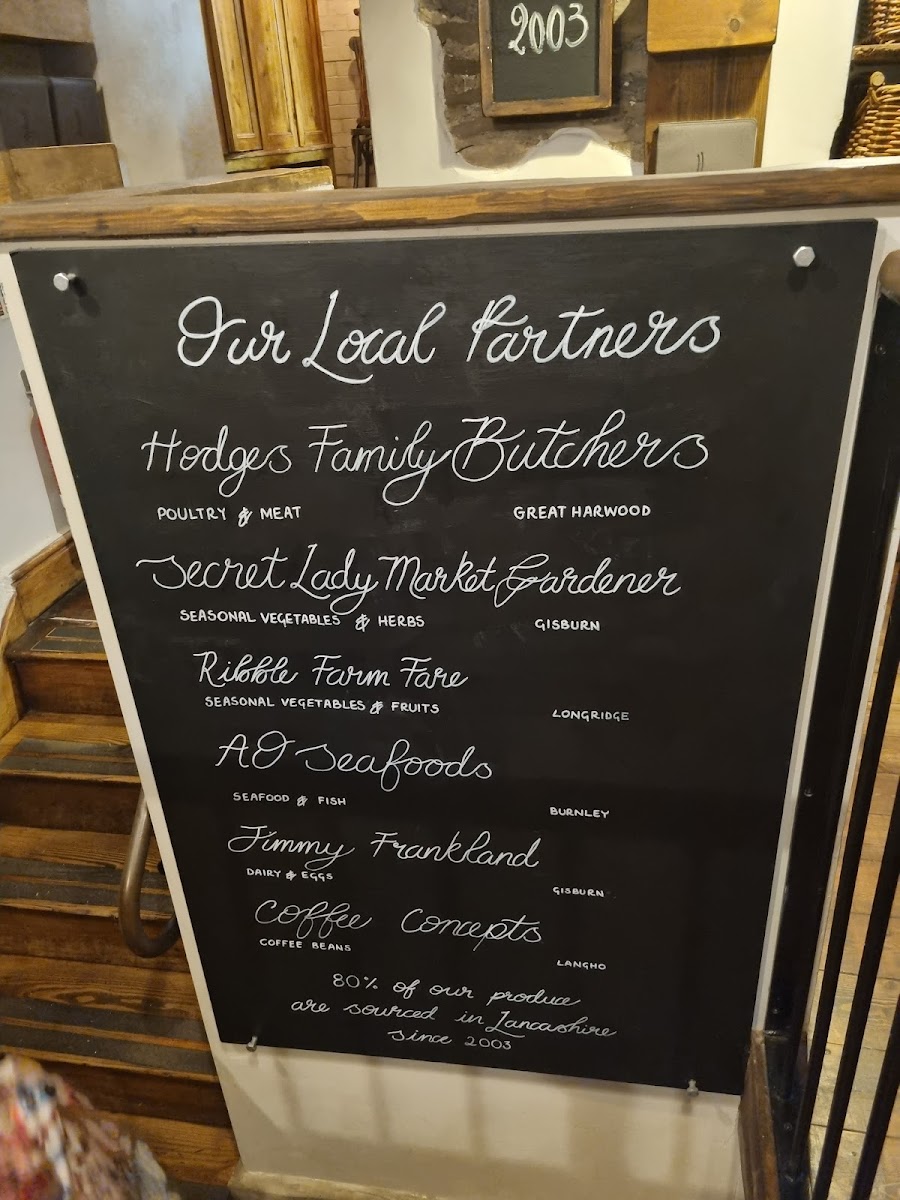 2003
Our Local Partners
Hodges Family Butchers
POULTRY & MEAT GREAT HARWOOD
Secret Lady Market Gardener
SEASONAL VEGETABLES & HERBS GISBURN
Ribble Farm Fare
SEASONAL VEGETABLES & FRUITS LONGRIDGE
AO Seafoods
SEAFOOD & FISH BURNLEY
Jimmy Frankland
DAIRY & EGGS GISBURN
Coffee Concepts
COFFEE BEANS LANGHO
80% of our produce
are sourced in Lancashire
since 2003